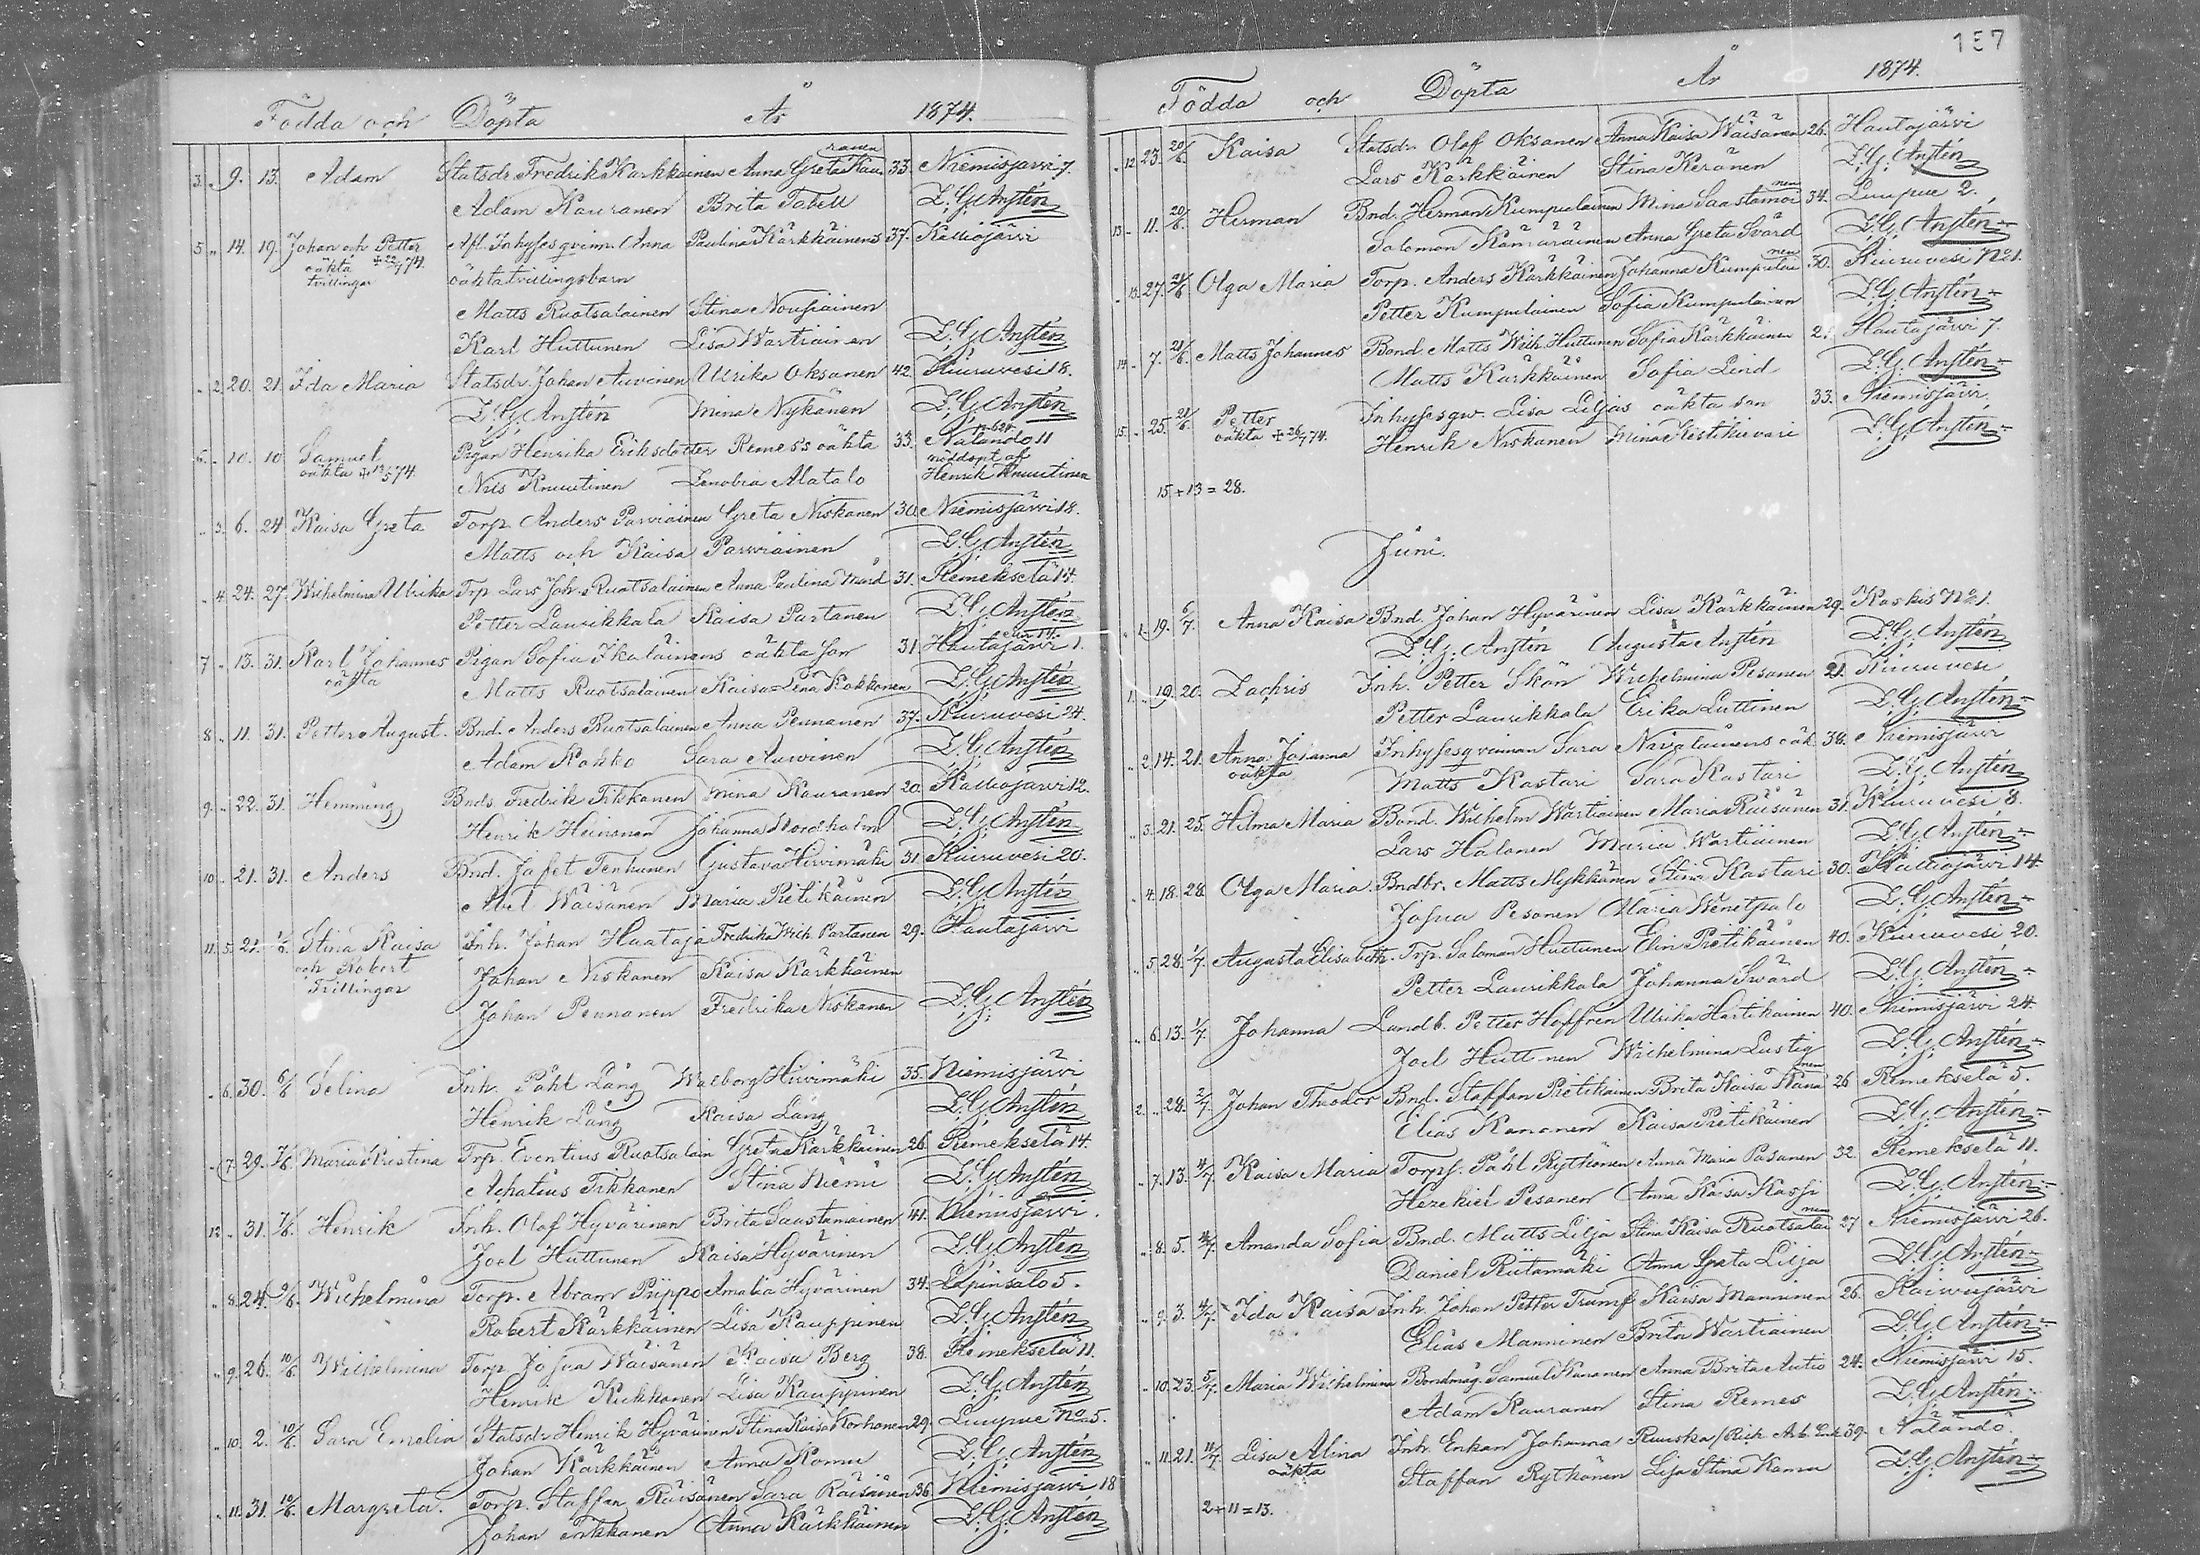 Födda och Döpta År 1874.
3. „ 9. 13. Adam Statsdr. Fredrik Karkkainen Anna Greta Kau 33. Niemisjärvi 7.
ranen
Adam Kauranen Brita Tabell L. G. Anstén
5 „ 14. 19. Johan och Petter Afl. Inhysesqvinn. Anna Paulina Kärkkäinens 37. Kalliojärvi
oäkta + 22/7 74. oäkta tvillingsbarn
tvillingar
Matts Ruotsalainen Stina Nousiainen
Karl Huttunen Lisa Wartiainen L. G. Anstén
„ 2. 20. 21. Ida Maria Statsdr. Johan Auvinen Ulrika Oksanen 42. Kiuruvesi 18.
L. G. Anstén Mina Nykänen L. G. Anstén
6. „ 10. 10 Samuel Pigan Henrika Eriksdotter Remes's oäkta 33. Näländö 11
oäkta + 12/5 74. nöddöpt af
Nils Knuutinen Lenobia Alatalo Henrik Knuutinen
„ 3. 6. 24 Kaisa Greta Torp. Anders Parviainen Greta Niskanen 30. Niemisjärvi 18.
Matts och Kaisa Parviainen L. G. Anstén
„ 4. 24. 27. Wilhelmina Ulrika Trp. Lars Joh. Ruotsalainen Anna Paulina Mård 31. Remekselä 14.
Petter Laurikkala Kaisa Partanen L. G. Anstén
7 „ 13. 31. Karl Johannes Pigan Sofia Ikäläinens oäkta son 31. Hautajärvi 1.
oäkta Matts Ruotsalainen Kaisa Lena Kokkonen L. G. Anstén
8 „ 11. 31. Petter August. Bnd. Anders Ruotsalainen Anna Pennanen 37. Kiuruvesi 24.
Adam Kokko Sara Auvinen L. G. Anstén
9. „ 22. 31. Hemming Bnds. Fredrik Tikkanen Mina Kauranen 20. Kalliojärvi 12.
Henrik Heinonen Johanna Nordholm L. G. Anstén
10 „ 21. 31. Anders Bnd. Jafet Tenhunen Gustava Hirvimäki 31. Kiuruvesi 20.
Abel Wäisänen Maria Pietikäinen L. G. Anstén
11. 5. 21. 1/6. Stina Kaisa Inh. Johan Haataja Fredrika Wilh. Partanen 29. Hautajärvi
och Robert Johan Niskanen Kaisa Kärkkäinen
Tvillingar Johan Pennanen Fredrika Niskanen L. G. Anstén
„ 6. 30. 6/6 Selina Inh. Påhl Lång Walborg Hirvimäki 35. Niemisjärvi
Henrik Lång Kaisa Lång L. G. Anstén
„ 7. 29. 7/6 Maria Kristina Trp. Eventius Ruotsalain Greta Kärkkäinen 26. Remekselä 14.
Achatius Tikkanen Stina Niemi L. G. Anstén
12 „ 31. 7/6. Henrik Inh. Olof Hyvärinen Brita Saastamoinen 41. Niemisjärvi.
Joel Huttunen Kaisa Hyvärinen L. G. Anstén
„ 8. 24. 9/6. Wilhelmina Torp. Abram Piippo Amalia Hyvärinen 34. Lapinsalo 5.
Robert Kärkkäinen Lisa Kauppinen L. G. Anstén
„ 9. 26. 10/6. Wilhelmina Torp. Josua Wäisänen Kaisa Berg 38. Remekselä 11.
Henrik Kukkonen Lisa Kauppinen L. G. Anstén
„ 10. 2. 10/6. Sara Emelia Statsdr. Henrik Hyvärinen Stina Kaisa Korhonen 29. Luupue No 5.
Johan Kärkkäinen Anna Komu L. G. Anstén
„ 11. 31. 10/6. Margreta. Torp. Staffan Räisänen Sara Räisänen 36. Niemisjärvi 18
Johan Tikkanen Anna Kärkkäinen L. G. Anstén
157
Födda och Döpta År 1874.
„ 12. 23. 20/6. Kaisa Statsdr. Olof Oksanen Anna Kaisa Wäisänen 26. Hautajärvi
Lars Kärkkäinen Stina Keränen L. G. Anstén
13 „ 11. 20/6. Herman Bnd. Herman Kumpulainen Mina Saastamoi 34. Luupue 2.
nen
Salomon Kämäräinen Anna Greta Svärd L. G. Anstén
„ 13. 27. 21/6 Olga Maria Torp. Anders Kärkkäinen Johanna Kumpulai 30. Kiuruvesi No 1.
nen
Petter Kumpulainen Sofia Kumpulainen L. G. Anstén
14 „ 7. 21/6 Matts Johannes Bond. Matts Wilh. Huttunen Sofia Kärkkäinen 21. Hautajärvi 7.
Matts Kärkkäinen Sofia Lind L. G. Anstén
15. „ 25. 21/6 Petter Inhysesqv. Lisa Liljas oäkta son 33. Niemisjärvi.
oäkta + 26/7 74. Henrik Niskanen Mina Kestikievari L. G. Anstén
15 + 13 = 28.
Juni.
„ 1. 19. 6/7. Anna Kaisa Bnd. Johan Hyvärinen Lisa Kärkkäinen 29. Koskis No 1.
L. G. Anstén Augusta Anstén L. G. Anstén
1. „ 19. 20. Zachris Inh. Petter Skön Wilhelmina Pesonen 21. Kiuruvesi
Petter Laurikkala Erika Luttinen L. G. Anstén
„ 2. 14. 21. Anna Johanna Inhysesqvinnan Sara Nivalainens oäk. 38. Niemisjärvi
oäkta Matts Kastari Sara Kastari L. G. Anstén
„ 3. 21. 25. Hilma Maria Bond. Wilhelm Wartiainen Maria Räisänen 31. Kiuruvesi 8.
Lars Halonen Maria Wartiainen L. G. Anstén
„ 4. 18. 28. Olga Maria. Bndbr. Matts Mykkänen Stina Kastari 30. Kalliojärvi 14.
Josua Pesonen Maria Wenetpalo L. G. Anstén
„ 5. 28. 1/7. Augusta Elisabeth. Trp. Salomon Huttunen Elin Pietikäinen 40. Kiuruvesi 20.
Petter Laurikkala Johanna Svärd L. G. Anstén
„ 6. 13. 1/7. Johanna Landb. Petter Hoffren Ulrika Hartikainen 40. Niemisjärvi 24.
Joel Huttunen Wilhelmina Lustig L. G. Anstén
2. „ 28. 2/7. Johan Theodor Bnd. Staffan Pietikäinen Brita Kaisa Kana 26 Remekselä 5.
nen
Elias Kananen Kaisa Pietikäinen L. G. Anstén
„ 7. 13. 4/7. Kaisa Maria Torps. Påhl Rytkönen Anna Maria Pasanen 32. Remekselä 11.
Hezekiel Pesonen Anna Kaisa Kassi L. G. Anstén
„ 8. 5. 4/7. Amanda Sofia Bnd. Matts Lilja Stina Kaisa Ruotsalai 27 Niemisjärvi 26.
nen
Daniel Riitamäki Anna Greta Lilja L. G. Anstén
„ 9. 3. 4/7. Ida Kaisa Inh. Johan Petter Trumf Kaisa Manninen 26. Kaivujärvi
Elias Manninen Brita Wartiainen L. G. Anstén
„ 10. 23. 5/7. Maria Wilhelmina Bondmåg. Samuel Kananen Anna Brita Autio 24. Niemisjärvi 15.
Adam Kauranen Stina Remes L. G. Anstén
„ 11. 21. 11/7. Lisa Alina Inh. Enkan Johanna Ruuska 39. Näländö.
oäkta Staffan Rytkönen Lisa Stina Kamu L. G. Anstén
2 + 11 = 13.